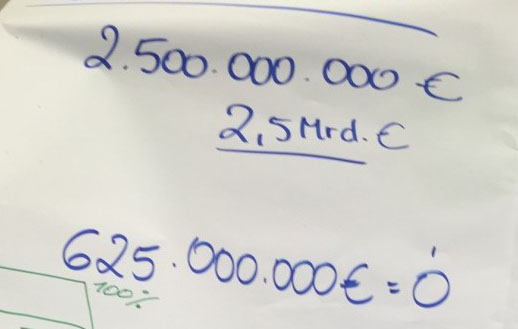 2.500.000.000 €
2,5 Mrd. €
625.000.000€ = Ó
100%